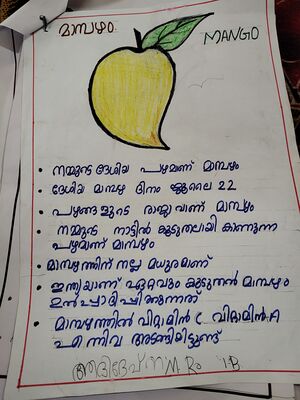 മാമ്പഴം
MANGO
• നമ്മുടെ ദേശിയ പഴമാണ് മാമ്പഴം
• ദേശിയ മാമ്പഴ ദിനം ജൂലൈ 22
• പഴങ്ങളുടെ രാജാവാണ് മാമ്പഴം
• നമ്മുടെ നാട്ടിൽ കൂടുതലായി കാണുന്ന
പഴമാണ് മാമ്പഴം
• മാമ്പഴത്തിന് നല്ല മധുരമാണ്
• ഇന്ത്യയാണ് ഏറ്റവും കൂടുതൽ മാമ്പഴം
ഉൽപ്പാദിപ്പിക്കുന്നത്
• മാമ്പഴത്തിൽ വിറ്റാമിൻ C വിറ്റാമിൻ A
എന്നിവ അടങ്ങിയിട്ടുണ്ട്
1-B